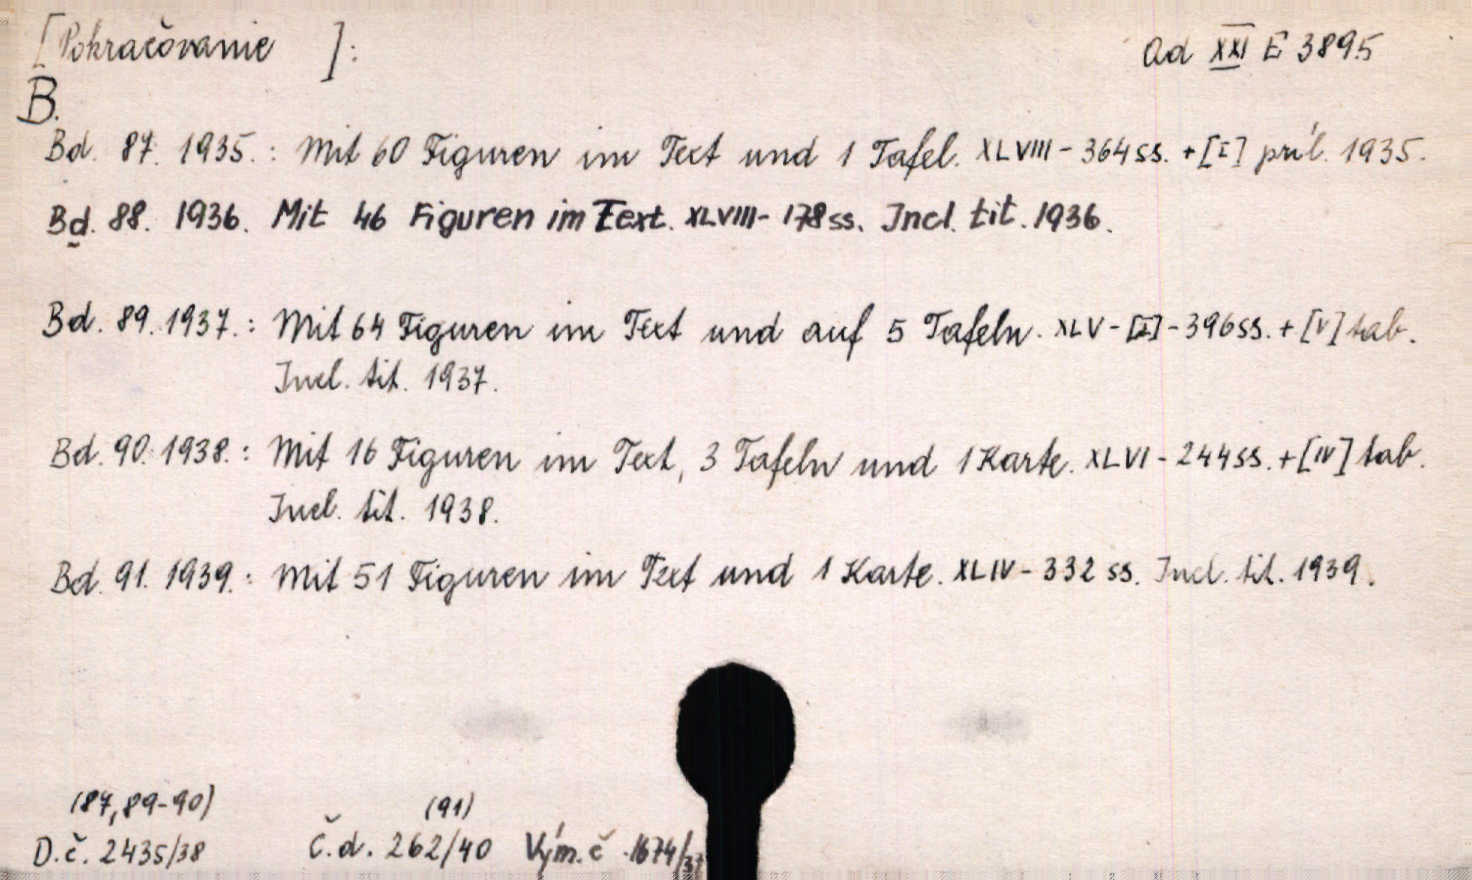 [Pokračovanie ]:
Ad XXI E 3895
B.
Bd. 87. 1935. : Mit 60 Figuren im Text und 1 Tafel. XLVIII - 364 ss. + [I] príl. 1935.
Bd. 88. 1936. Mit 46 Figuren im Text. XLVIII - 178 ss. Incl. tit. 1936.
Bd. 89. 1937. : Mit 64 Figuren im Text und auf 5 Tafeln. XLV - [I] - 396 ss. + [V] tab.
Incl. tit. 1937.
Bd. 90. 1938. : Mit 16 Figuren im Text, 3 Tafeln und 1 Karte. XLVI - 244 ss. + [IV] tab.
Incl. tit. 1938.
Bd. 91. 1939. : Mit 51 Figuren im Text und 1 Karte. XLIV - 332 ss. Incl. tit. 1939.
(87, 89-90) (91)
D.č. 2435/38 Č.d. 262/40 Vým. č. 1674/37